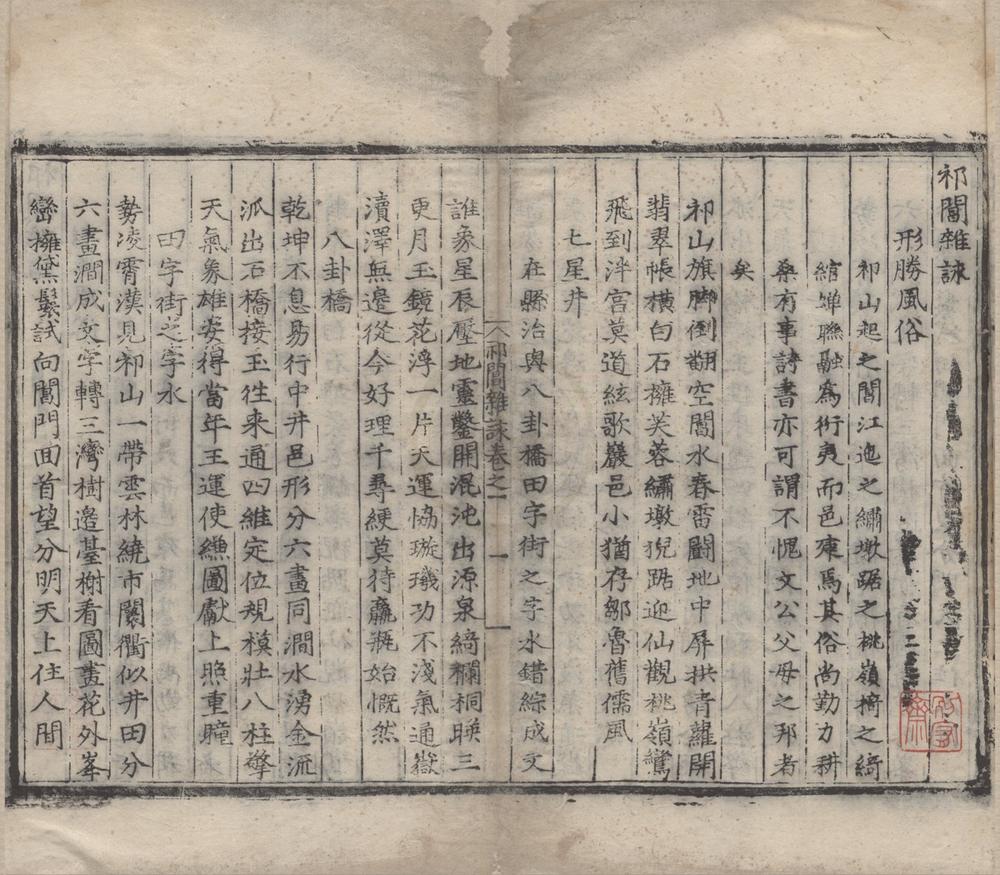 祁閶雜詠
形勝風俗
祁山起之閶江迤之繡墩踞之桃嶺掎之綺
綰蟬聯融爲衍夷而邑廛焉其俗尚勤力耕
桑有事詩書亦可謂不愧文公父母之邦者
矣
祁山旗脚倒翻空閶水春雷鬭地中屏拱青蘿開
翡翠帳橫白石擁芙蓉繡墩猊踞迎仙觀桃嶺鸞
飛到泮宫莫道絃歌巖邑小猶存鄒魯舊儒風
七星井
在縣治與八卦橋田字街之字水錯綜成文
祁閶雜詠卷之一 一
誰象星辰壓地靈鑿開混沌出源泉綺欄桐暎三
更月玉鏡花浮一片天運恊璇璣功不淺氣通嶽
瀆澤無邊從今好理千尋綆莫待羸瓶始慨然
八卦橋
乾坤不息易行中井邑形分六畫同澗水湧金流
派出石橋接玉徃來通四維定位規模壯八柱擎
天氣象雄安得當年王運使繪圖獻上照重瞳
田字街之字水
勢凌霄漢見祁山一帶雲林繞市闤衢似井田分
六畫澗成文字轉三灣樹邊臺榭看圖畫花外峯
巒擁黛鬟試向閶門回首望分明天上住人間